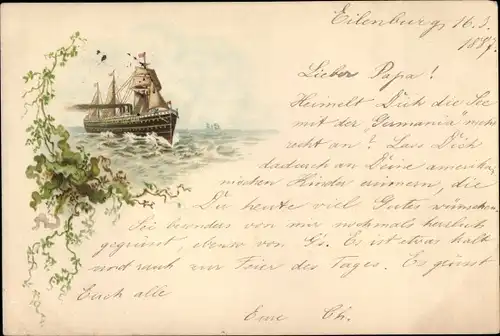 Eilenburg, 16.3.
1887.
Lieber Papa!
Heimelt Dich die See
mit der "Germania" nicht
recht an? Lass Dich
dadurch an Deine amerika-
nischen Kinder erinnern, die
Dir heute viel Gutes wünschen.
Sei besonders von mir nochmals herzlich
gegrüsst, ebenso von Gs. Es ist etwas kalt
und rauh zur Feier des Tages. Es grüsst
Euch alle
Eure Ch.